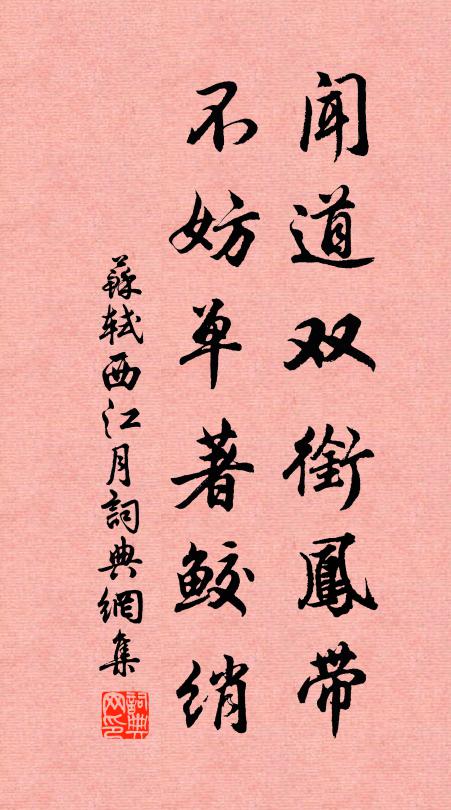 闻道双銜鳳带
不妨单著鲛绡
蘇轼西江月詞典網集
詞典网印